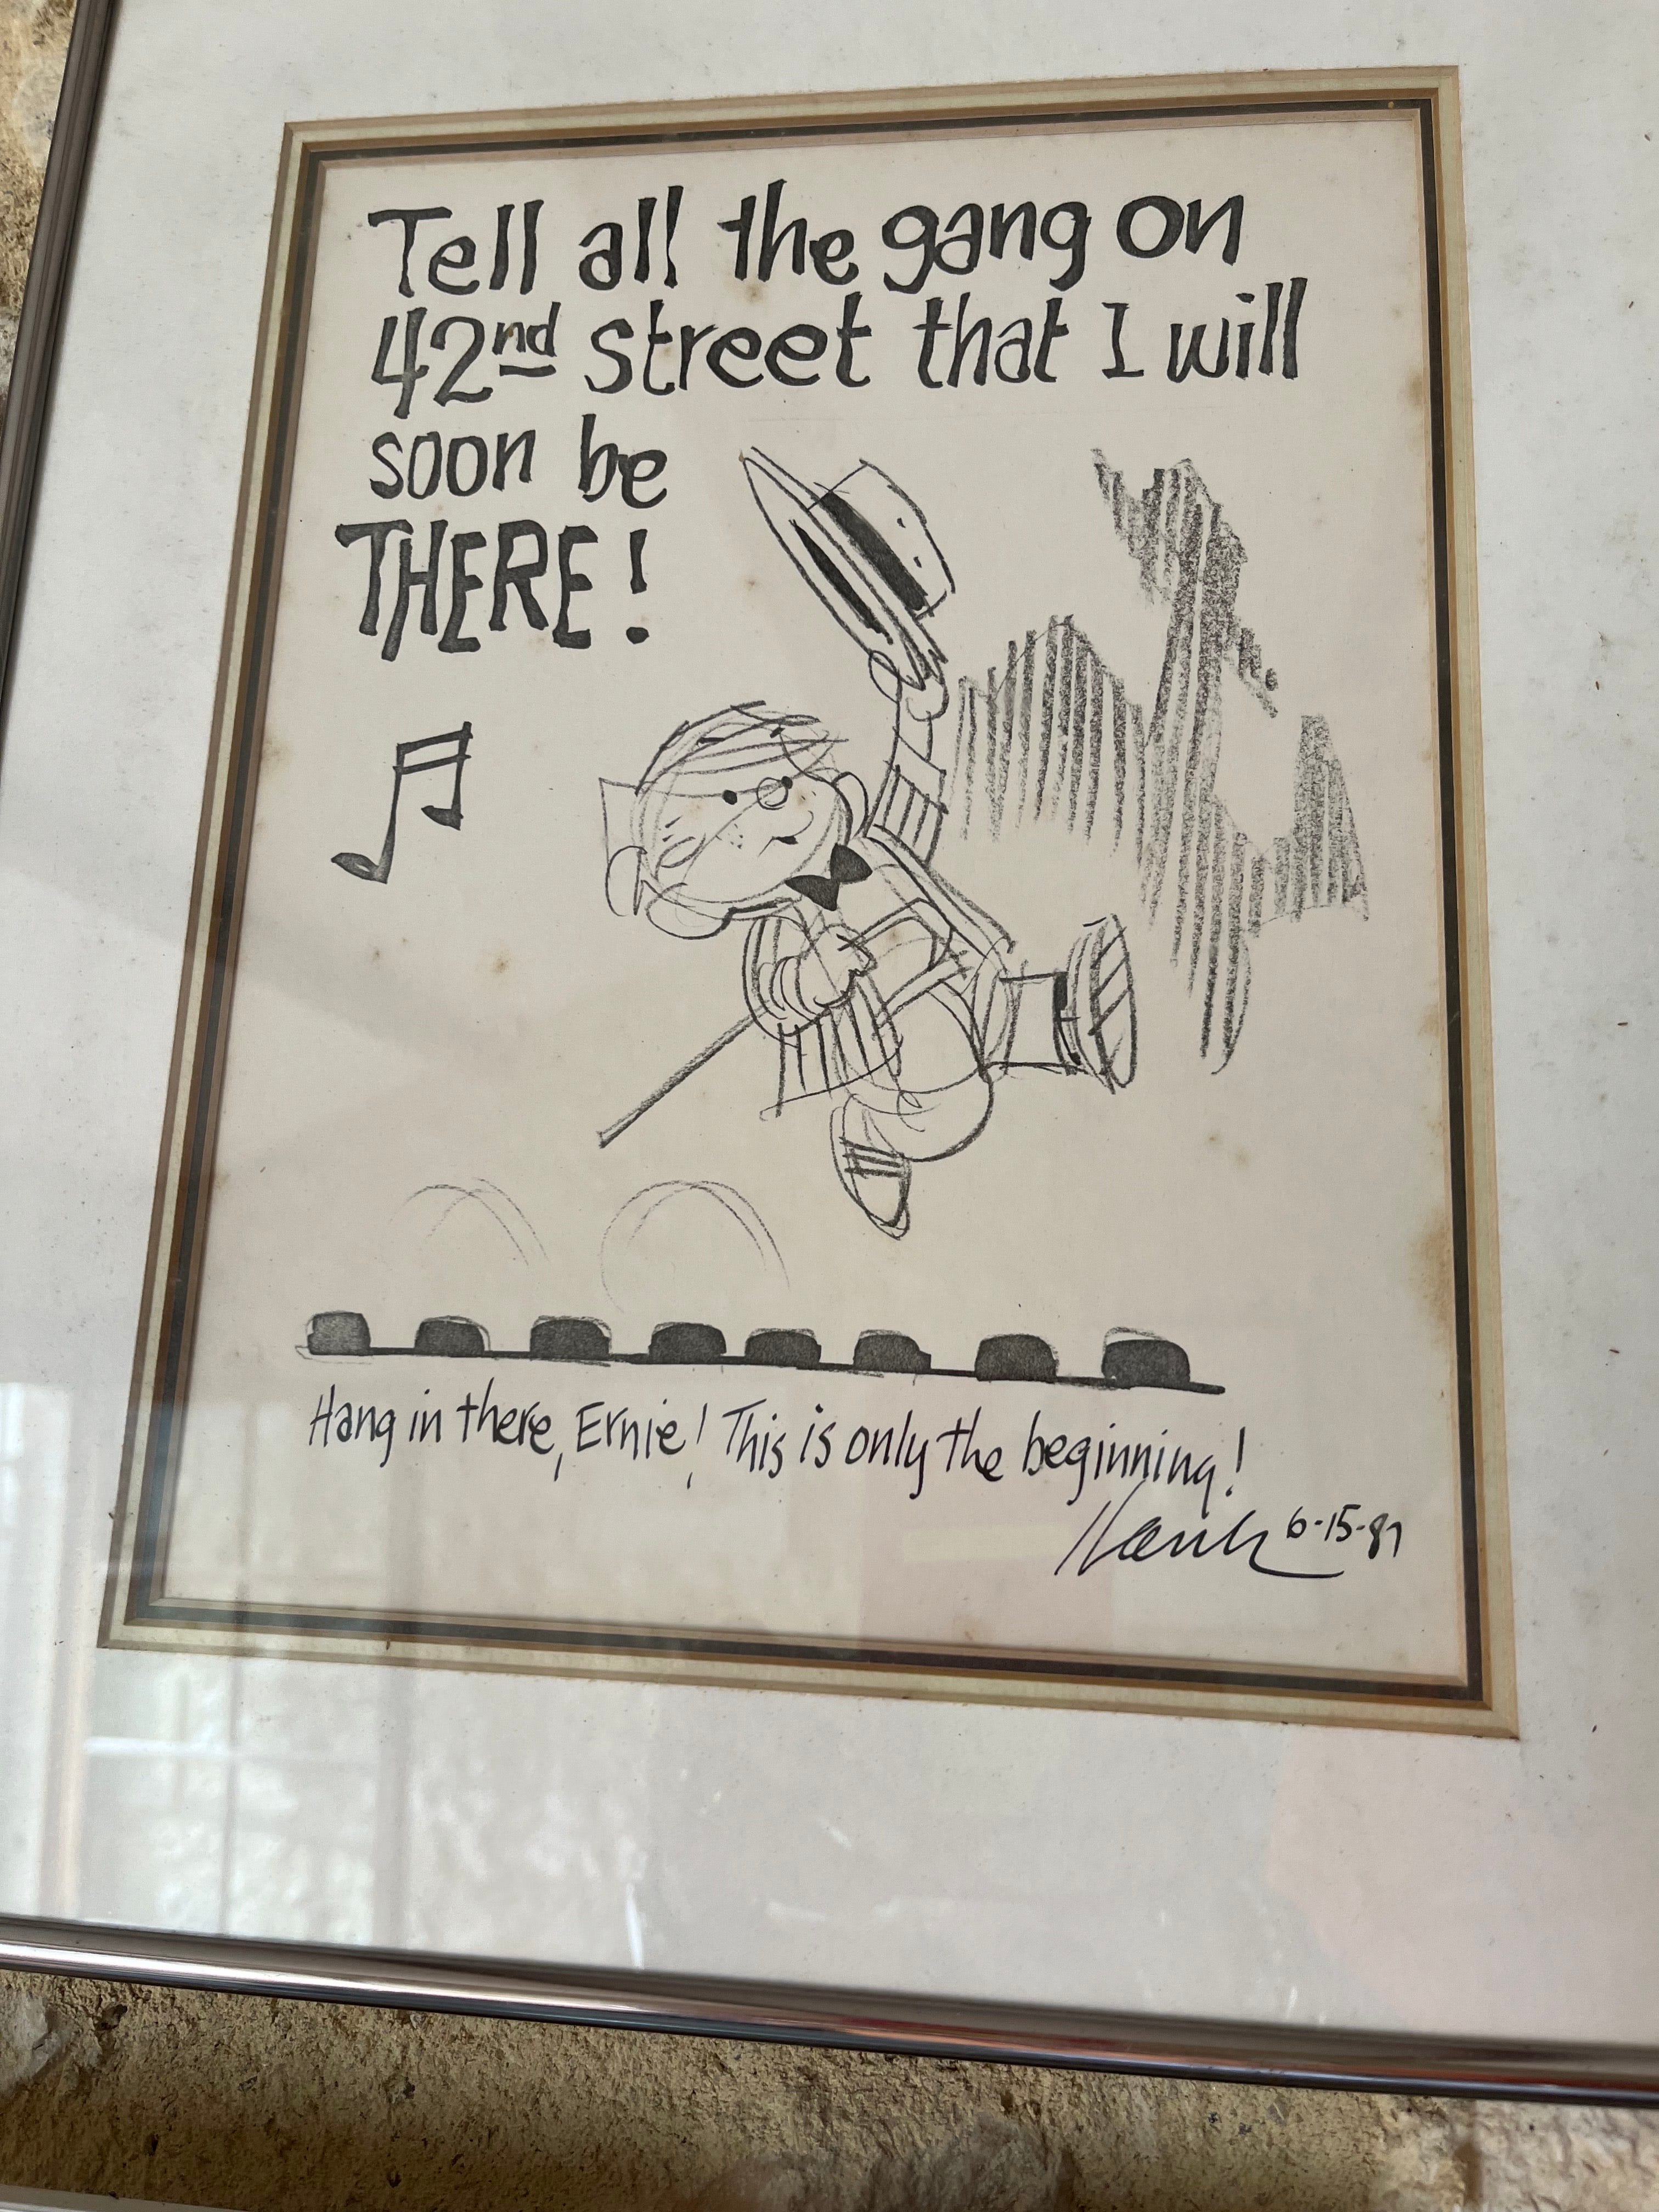 Tell all the gang on
42nd street that I will
soon be
THERE!
Hang in there, Ernie! This is only the beginning!
Hank 6-15-87